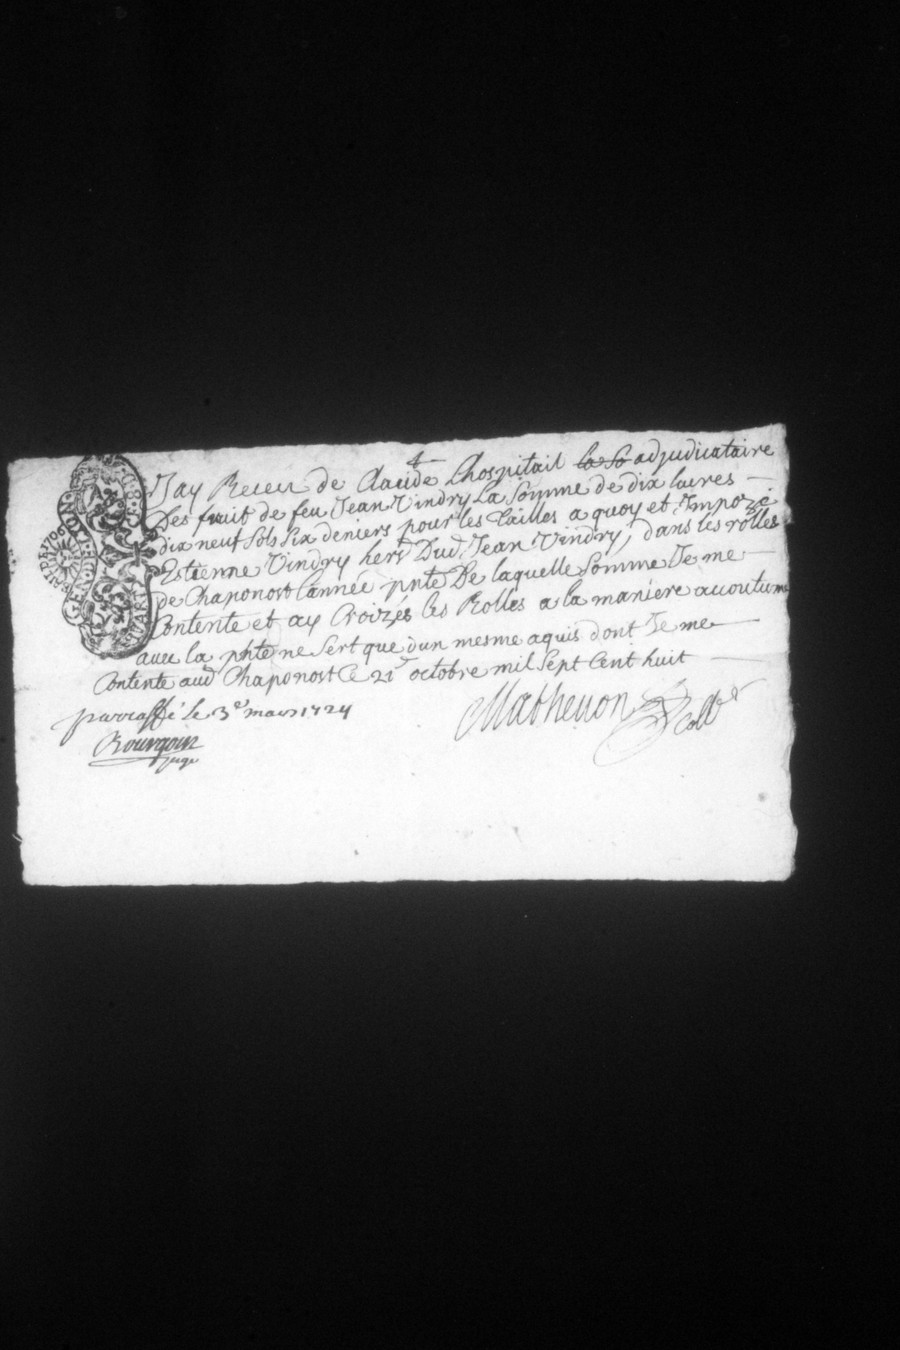 Jay Receu de Claude Lhospitail la So adjudicataire
Des fruit de feu Jean Vindry La Somme de dix livres
dix neuf Sols Six deniers pour les Tailles a quoy et Jmpozé
Estienne Vindry hers Dud. Jean Vindry, dans les rolles
De Chaponost lannée pnte De laquelle Somme Je me
Contente et ay Croizés les Rolles a la maniere accoutume
avec la pnte ne Sert que dun mesme aquis dont Je me
Contente aud Chaponost Ce 21e octobre mil Sept Cent huit
Mathevon Collr
parraffé le 3e mars 1724
Bourgoin
juge
GEN.D.LYON
QUART